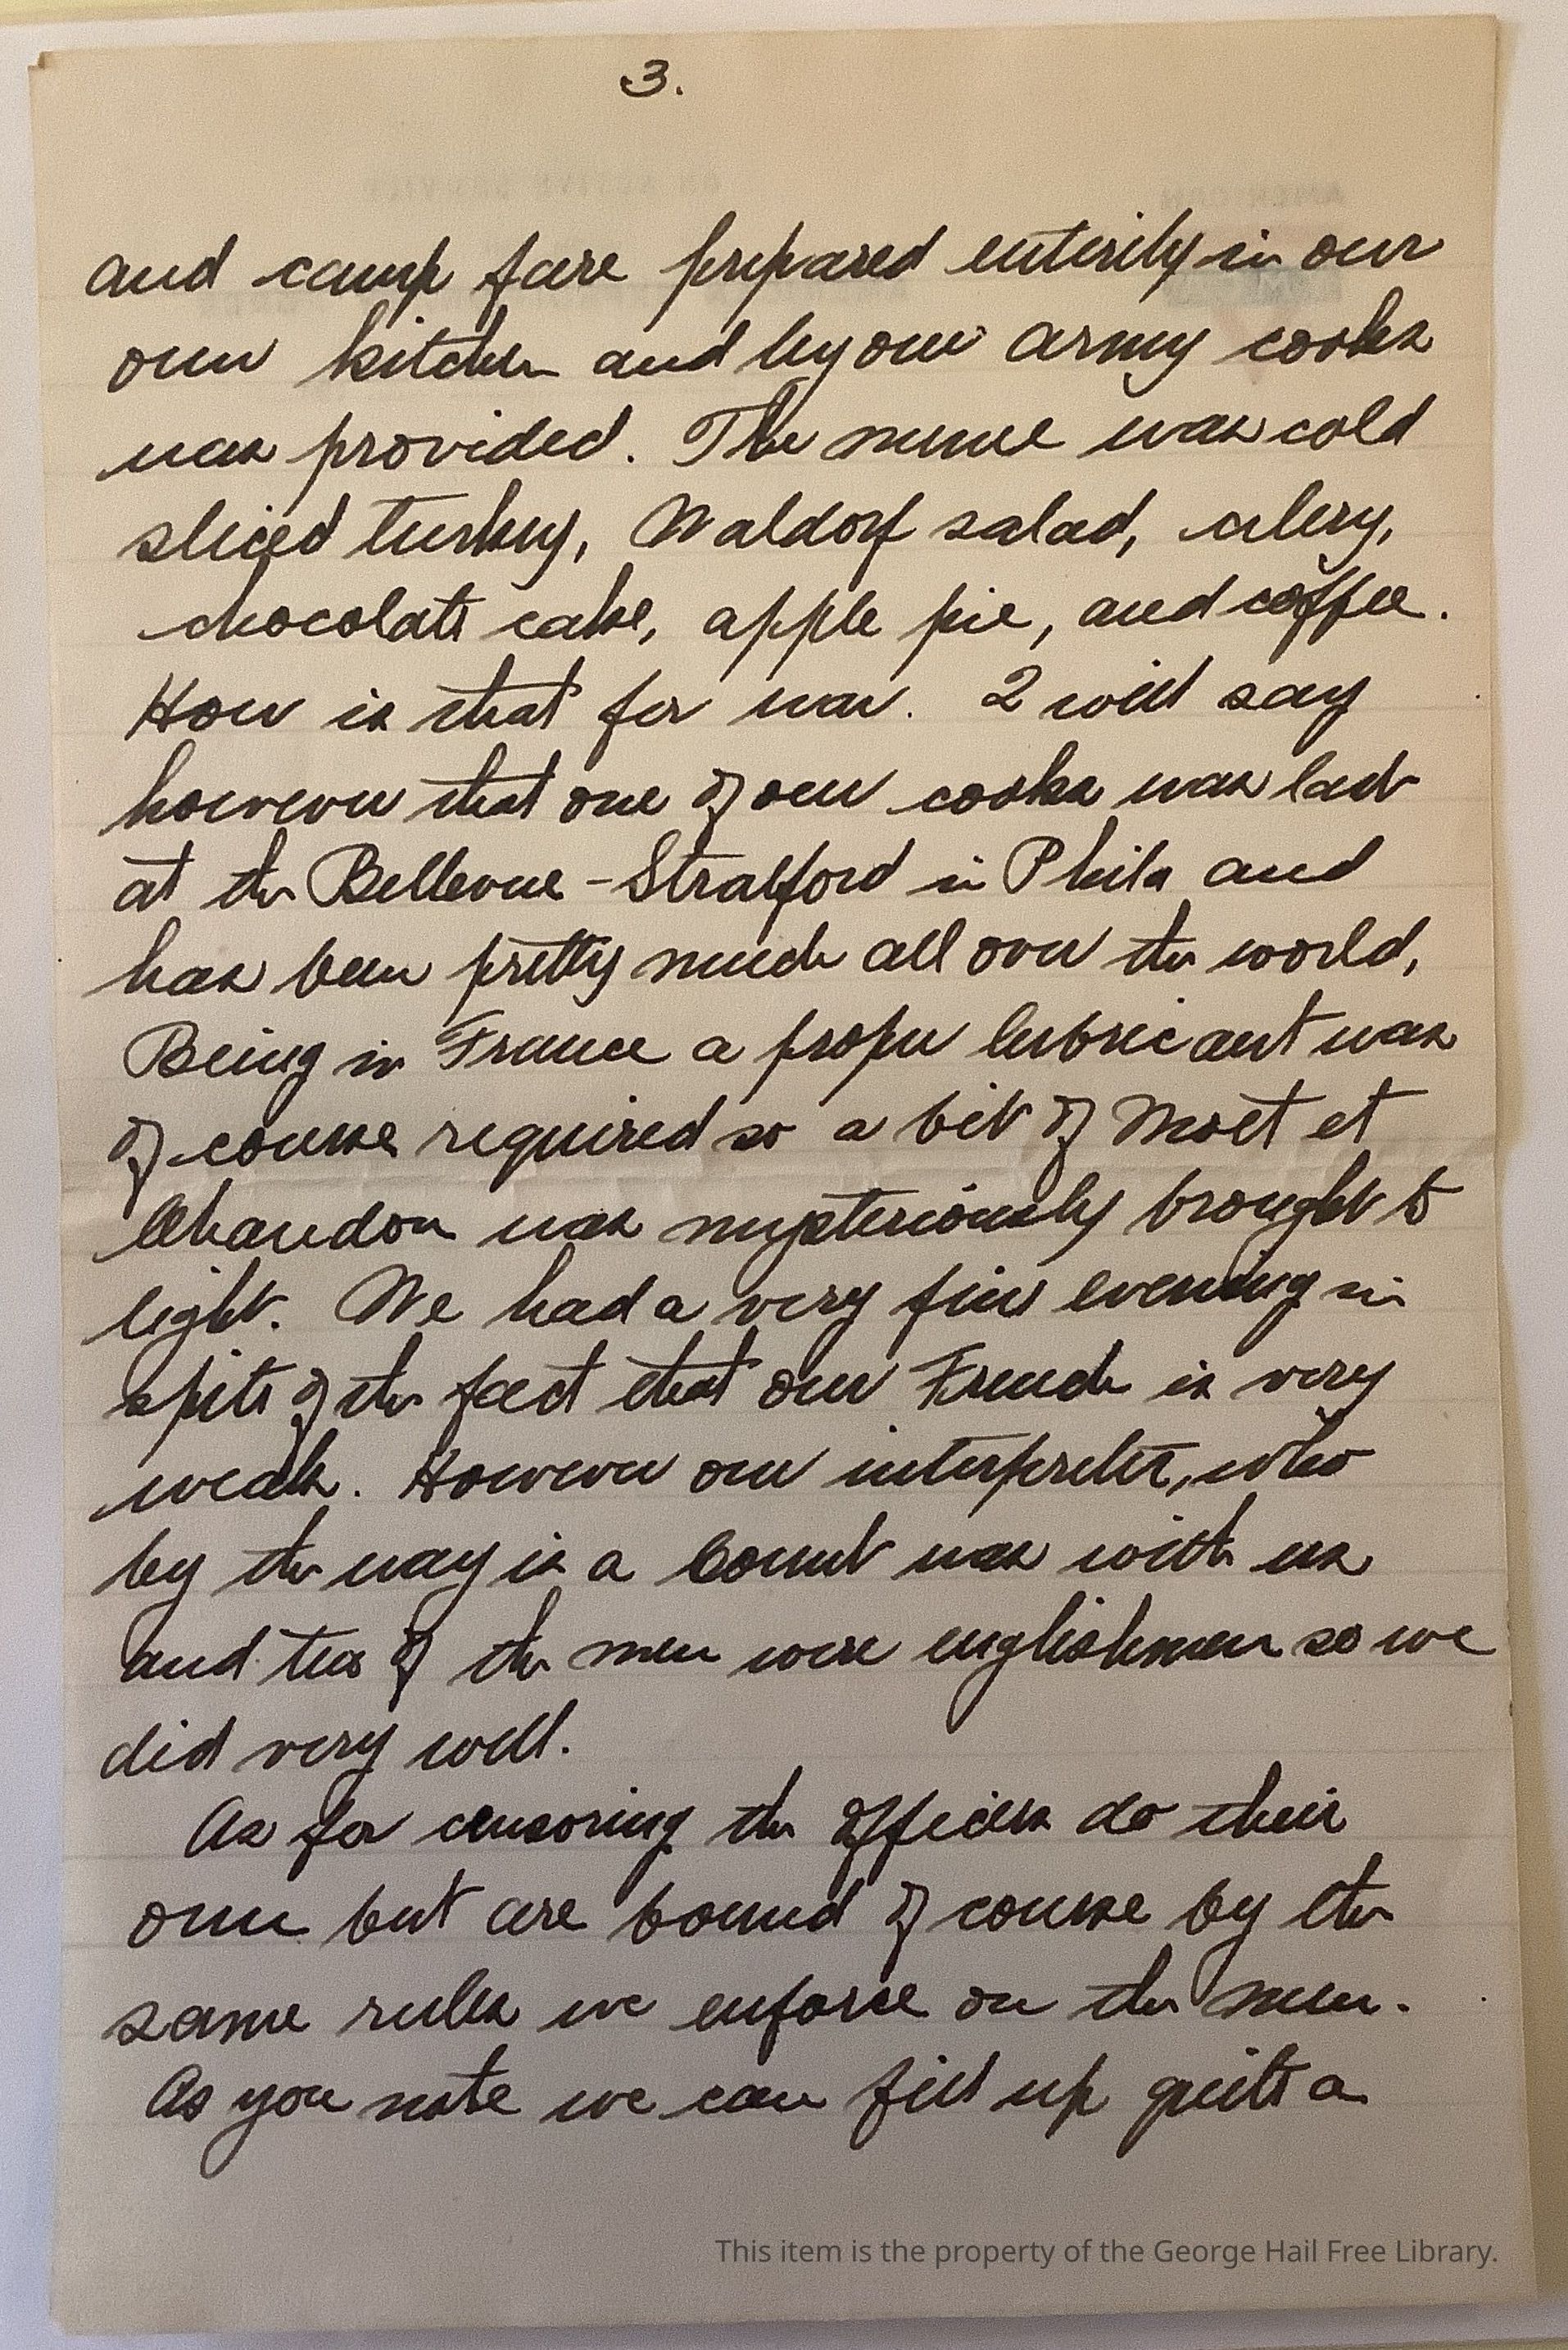 3.
and camp fare prepared enterily in our
own kitchen and by our army cooks
was provided. The menue was cold
sliced turkey, Waldorf salad, celery,
chocolate cake, apple pie, and coffee.
How is that for war. I will say
however that one of our cooks was last
at the Bellevue-Stratford in Phila and
has been pretty much all over the world,
Being in France a proper lubricant was
of course required so a bit of Moet et
Chandon was mysteriously brought to
light. We had a very fine evening in
spite of the fact that our French is very
weak. However our interpreter, who
by the way is a Count was with us
and two of the men were englishmen so we
did very well.
As for censoring the officers do their
own but are bound of course by the
same rules we enforce on the men.
As you note we can fill up quite a
This item is the property of the George Hail Free Library.